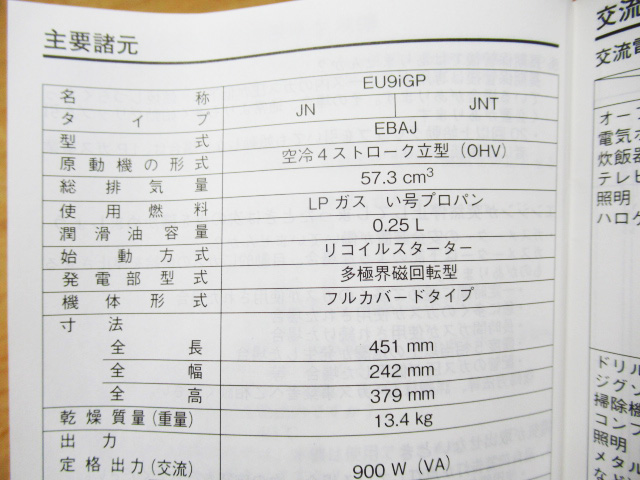 主要諸元
名称 EU9iGP
タイプ JN JNT
型式 EBAJ
原動機の形式 空冷4ストローク立型(OHV)
総排気量 57.3 cm³
使用燃料 LPガス い号プロパン
潤滑油容量 0.25 L
始動方式 リコイルスターター
発電部型式 多極界磁回転型
機体形式 フルカバードタイプ
寸法
全長 451 mm
全幅 242 mm
全高 379 mm
乾燥質量(重量) 13.4 kg
出力
定格出力(交流) 900 W (VA)
交流
交流電
オーブ
電気ス
炊飯器
テレビ
照明
ハロゲ
ドリル
ジグソ
掃除機
コンプ
照明
メタル